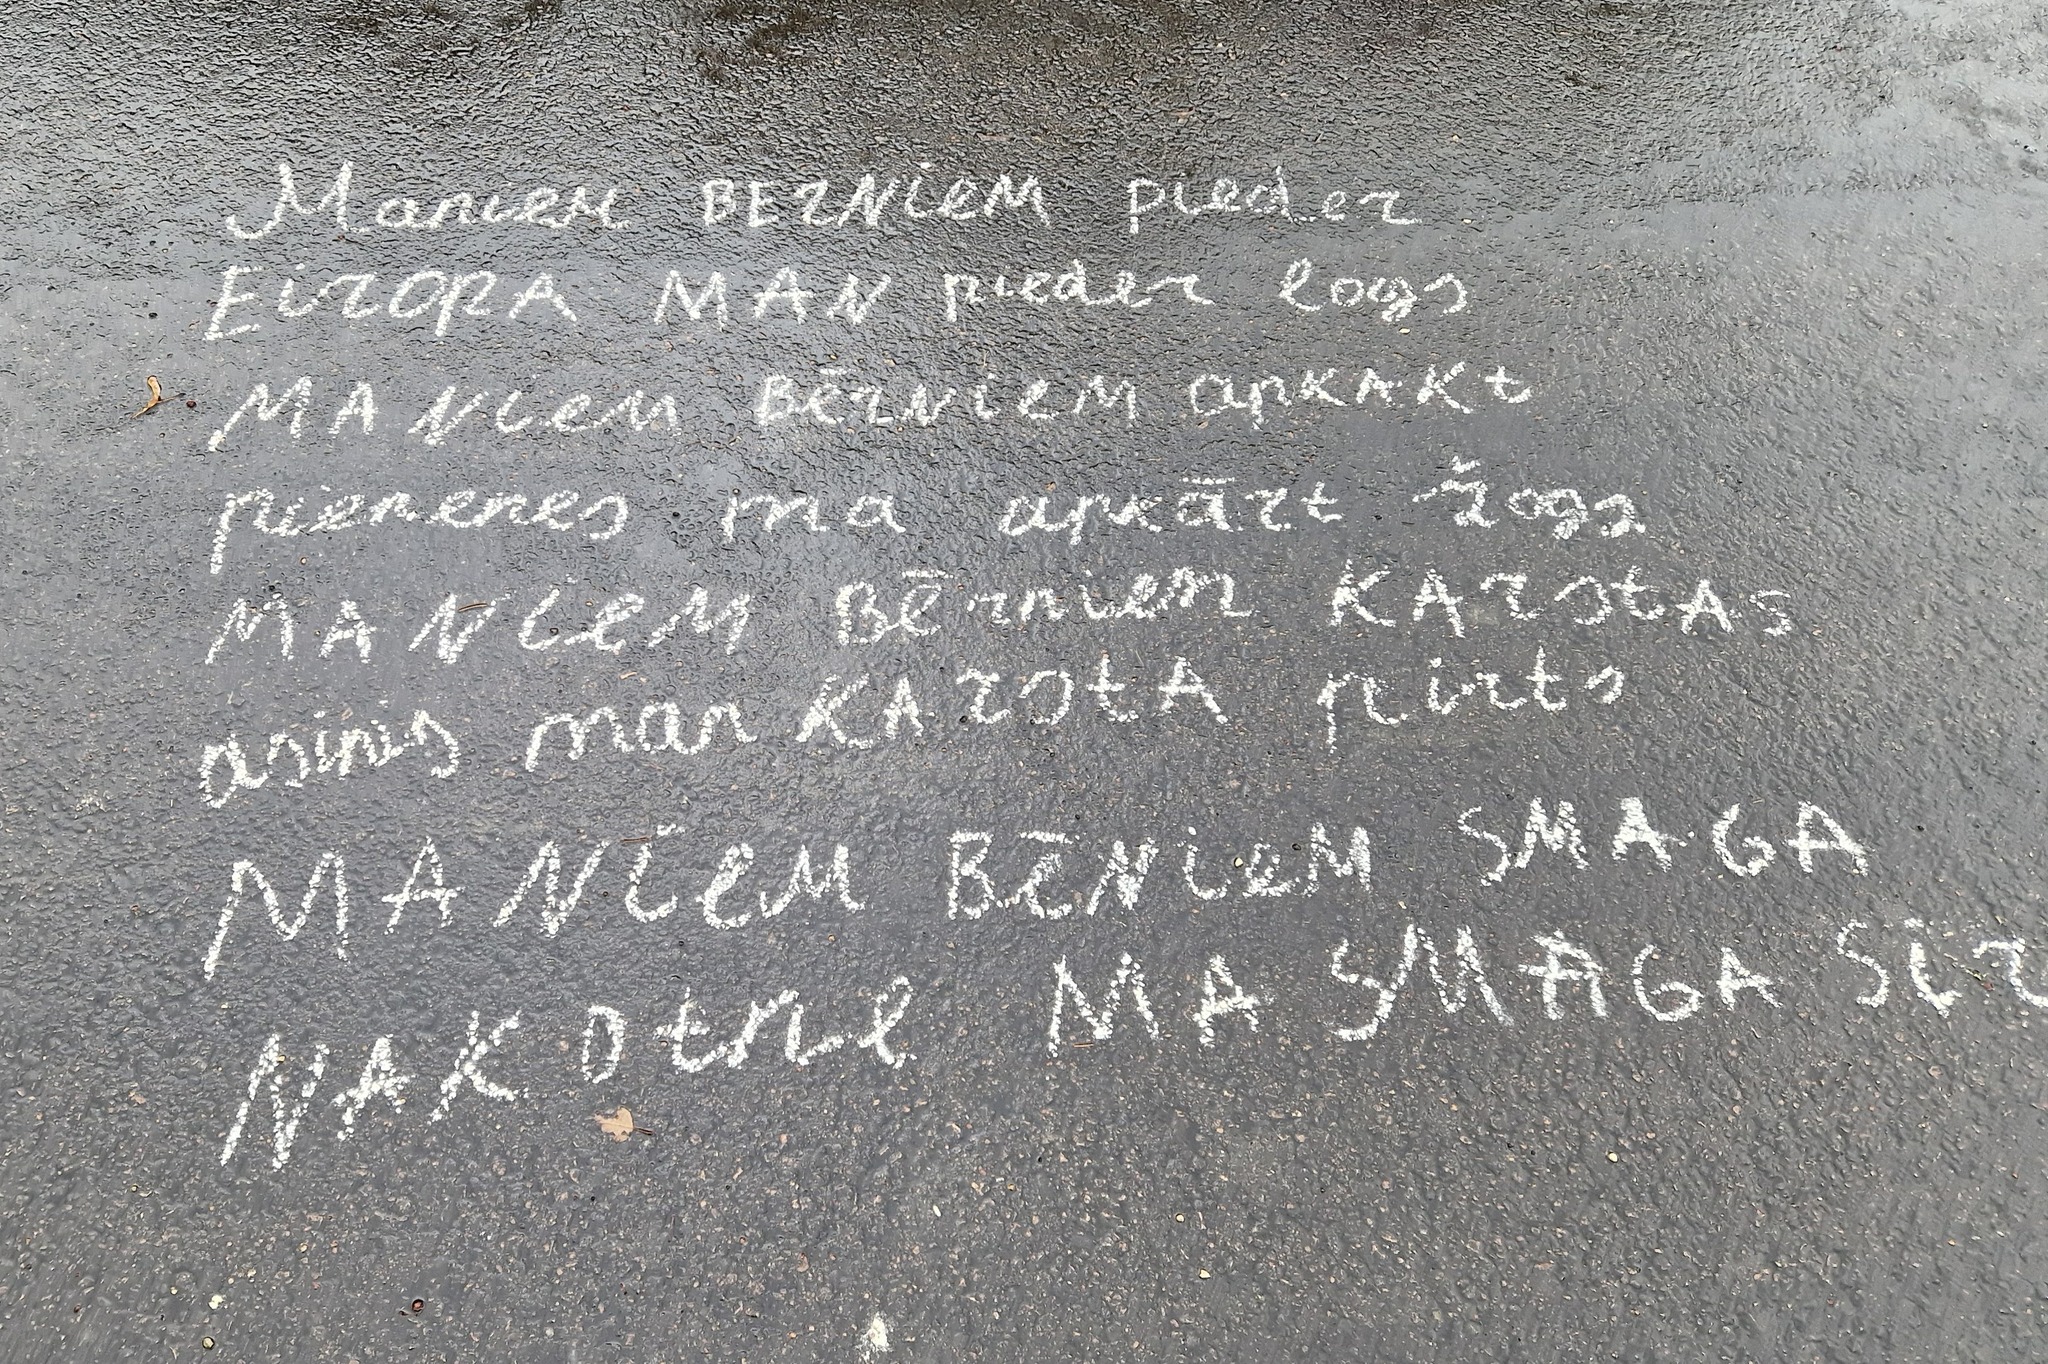 Maniem BERNIEM pieder
EiroPA MAN pieder logs
MANiem BērNiem apKAKt
pienenes ma apkārt žogs
MANIEM Bērniem KArstAs
asinis man KArstA pirts
MANiEM BēNiEM SMAGA
NAKOtNe MA SMAGA Sir